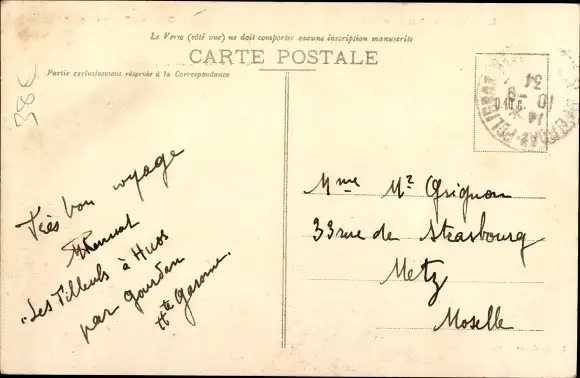 Le Verso (côté vue) ne doit comporter aucune inscription manuscrite
CARTE POSTALE
Partie exclusivement réservée à la Correspondance
38€
Très bon voyage
"Les Tilleuls à Huos
par Gourdan
Hte Garonne.
Mme Mce Grignon
33 rue de Strasbourg
Metz
Moselle
14
10 -9
34